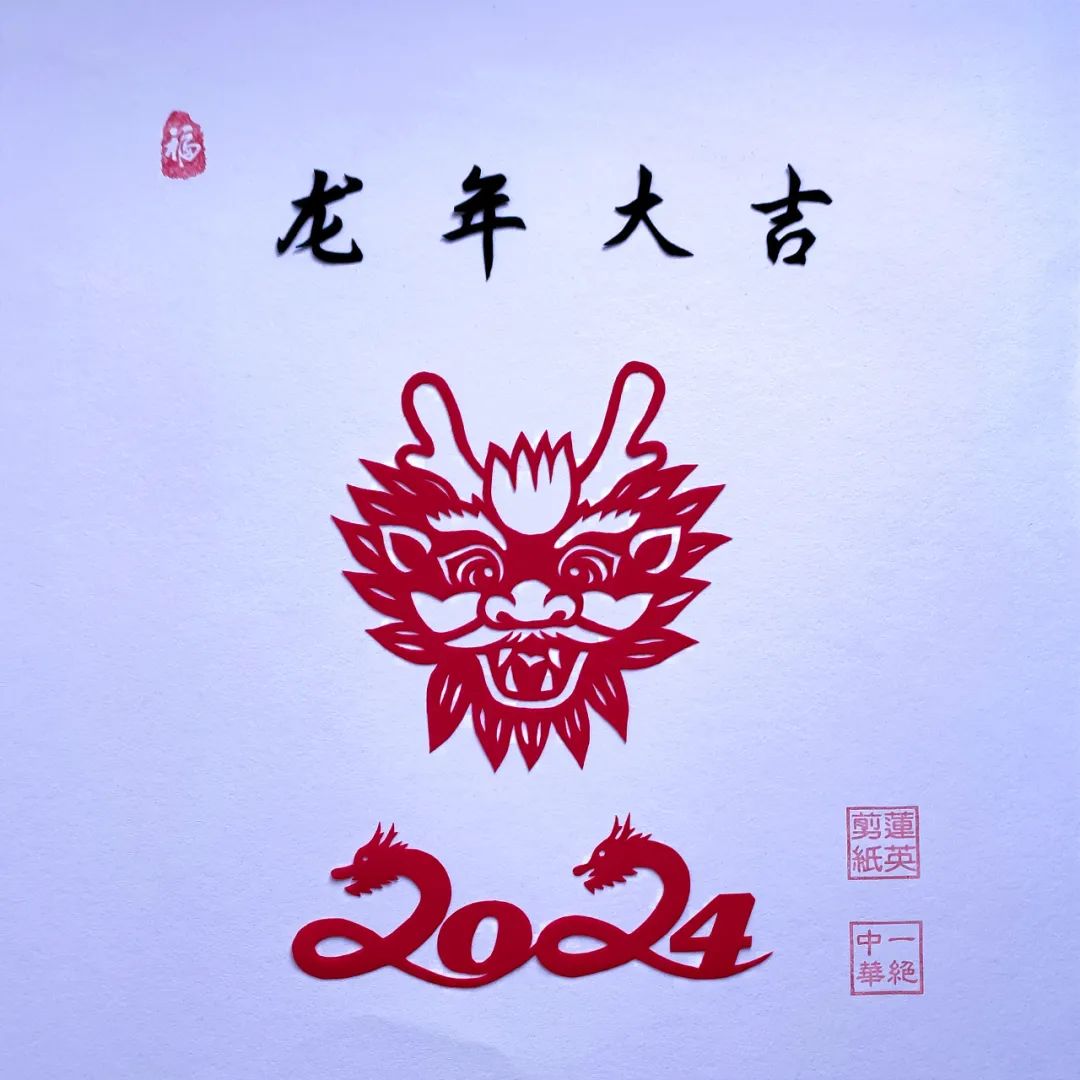 福
龙年大吉
2024
蓮英
剪紙
一絕
中華